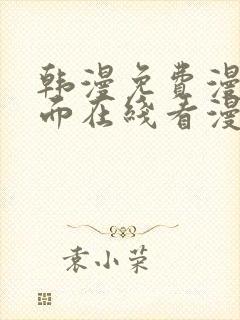 韩漫免费漫
而在线看漫
袁小荣